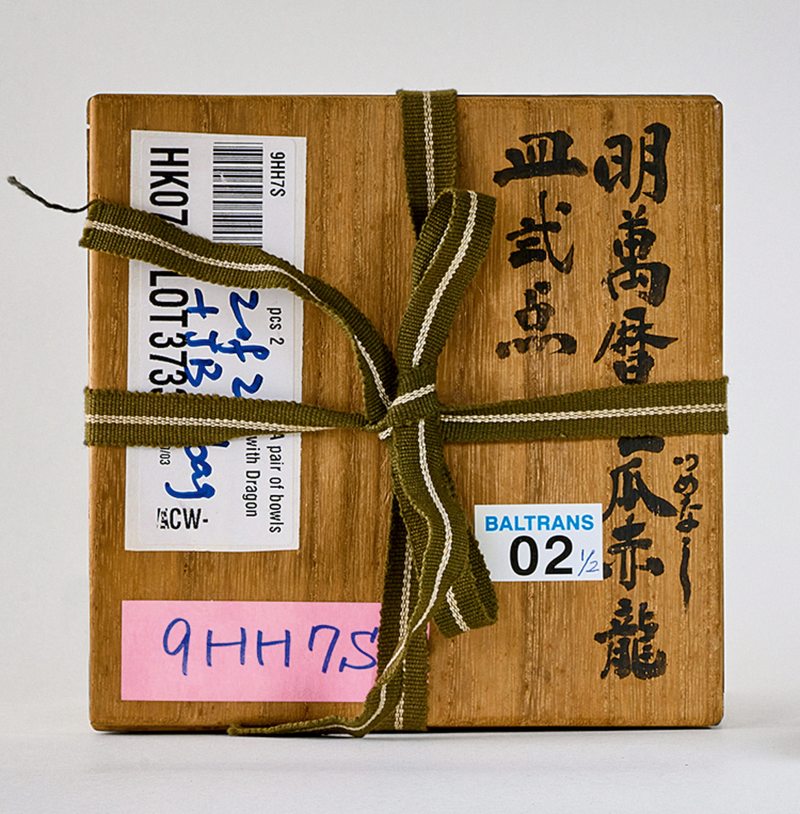 明萬暦 瓜赤龍
つめなし
皿弐点
9HH7S
HK07 LOT373
pcs 2
A pair of bowls
with Dragon
2 of 2
+ JB bag
/03
CW-
BALTRANS
02 1/2
9HH7S